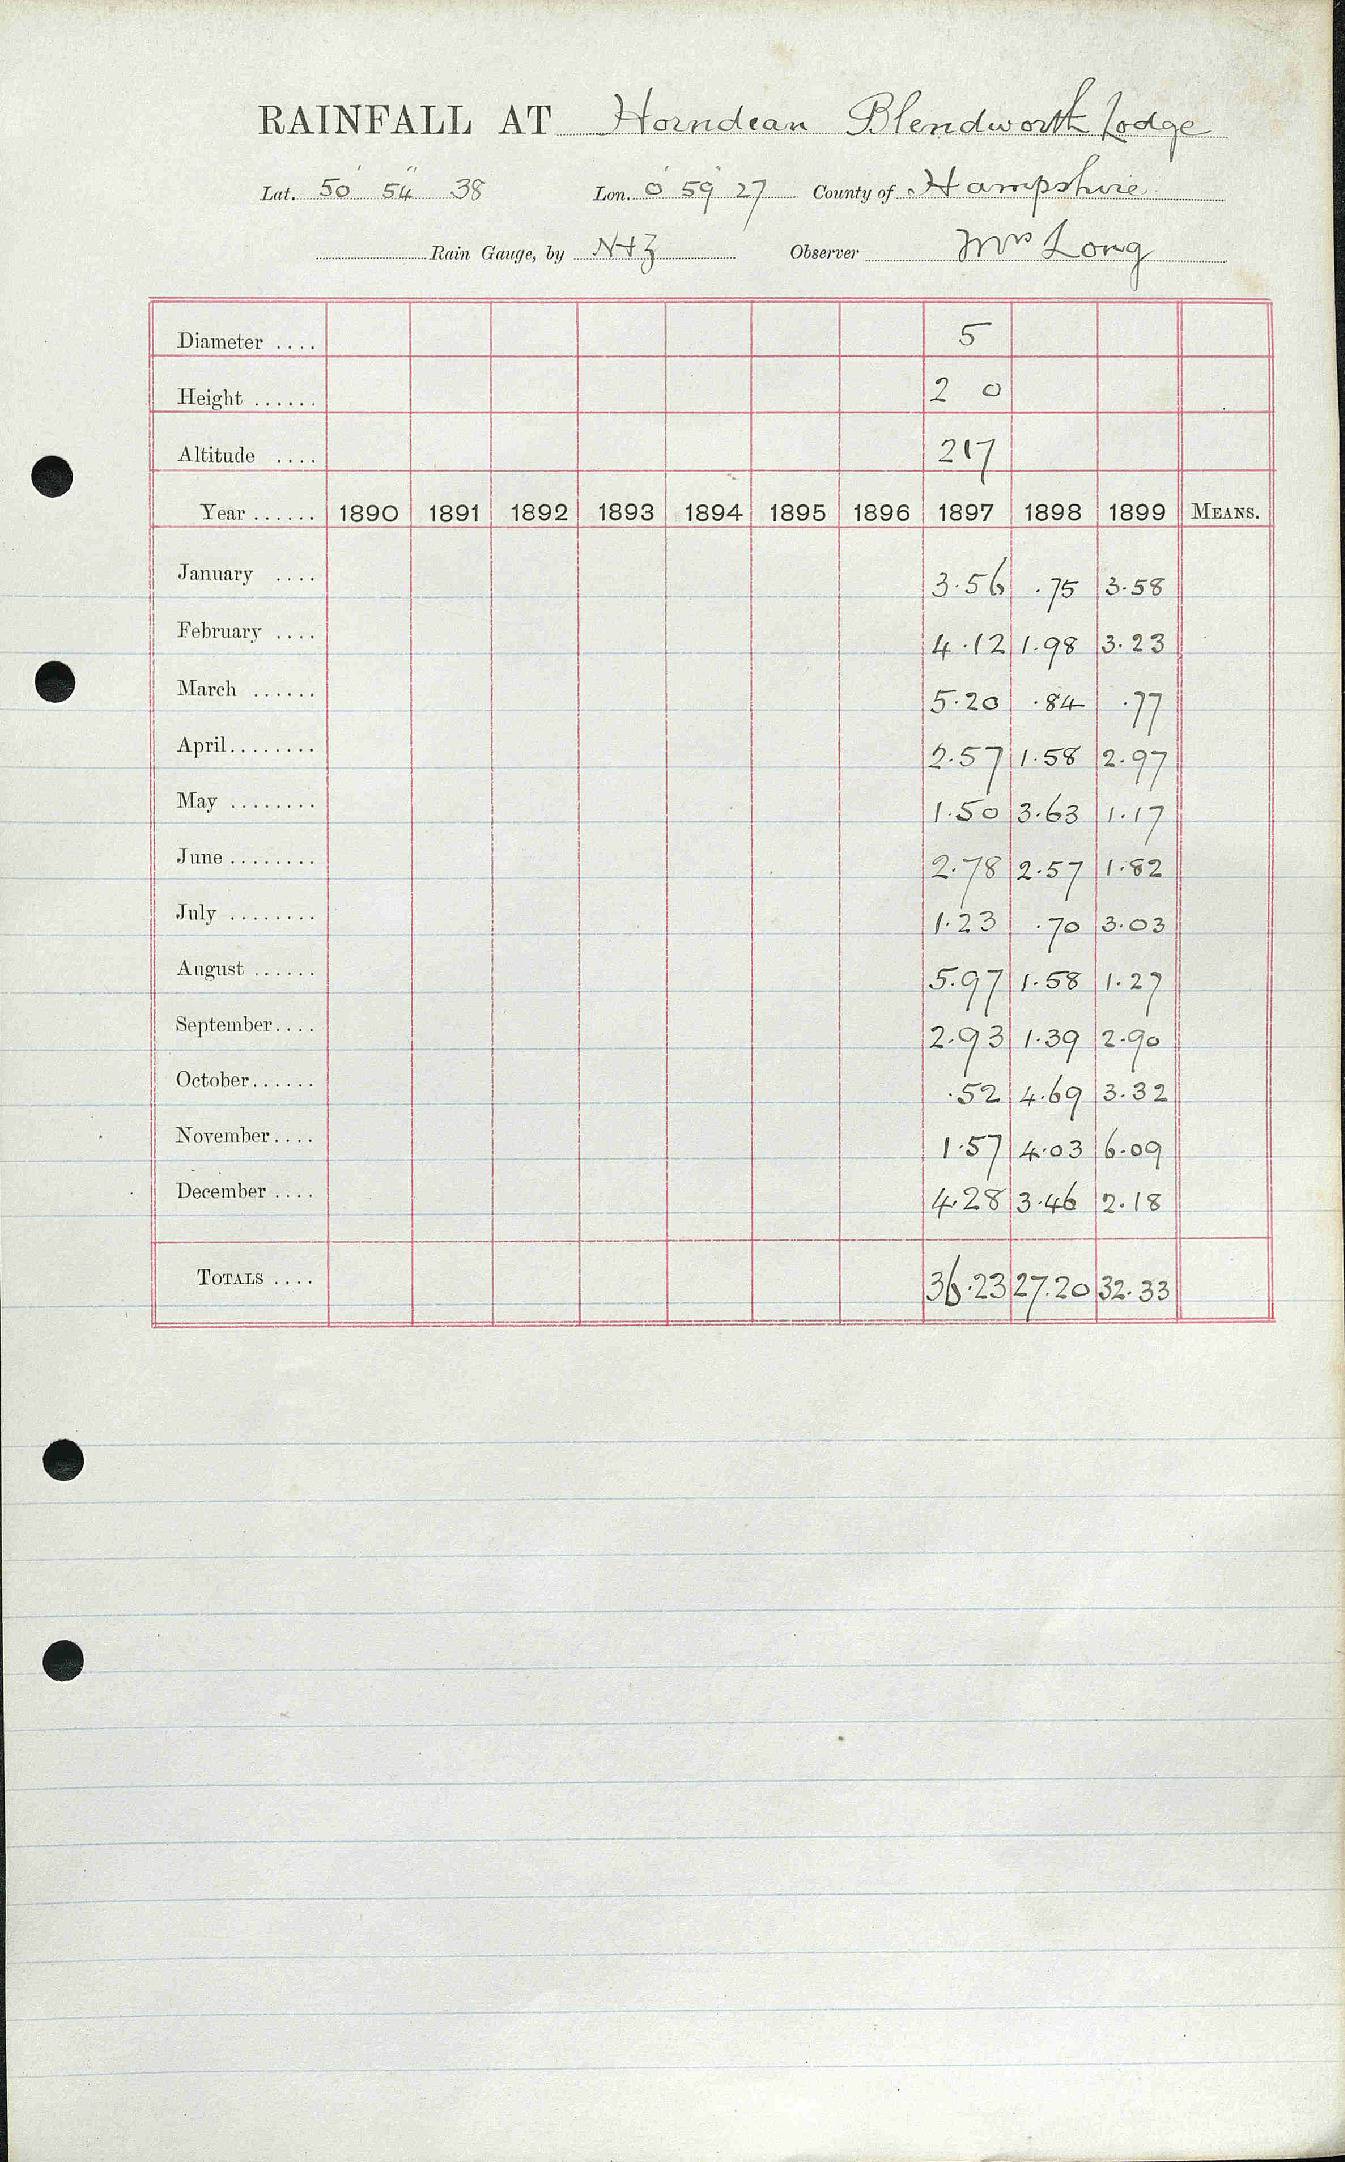 RAINFALL AT Horndean Blendworth Lodge
Lat. 50 54 38 Lon. 0 59 27 County of Hampshire
Rain Gauge, by N+Z Observer Mrs Long
Diameter .... 5
Height ...... 2 0
Altitude .... 217
Year ...... 1890 1891 1892 1893 1894 1895 1896 1897 1898 1899 MEANS.
January .... 3.56 .75 3.58
February .... 4.12 1.98 3.23
March ...... 5.20 .84 .77
April........ 2.57 1.58 2.97
May ........ 1.50 3.63 1.17
June ........ 2.78 2.57 1.82
July ........ 1.23 .70 3.03
August ...... 5.97 1.58 1.27
September.... 2.93 1.39 2.90
October...... .52 4.69 3.32
November.... 1.57 4.03 6.09
December .... 4.28 3.46 2.18
TOTALS .... 36.23 27.20 32.33